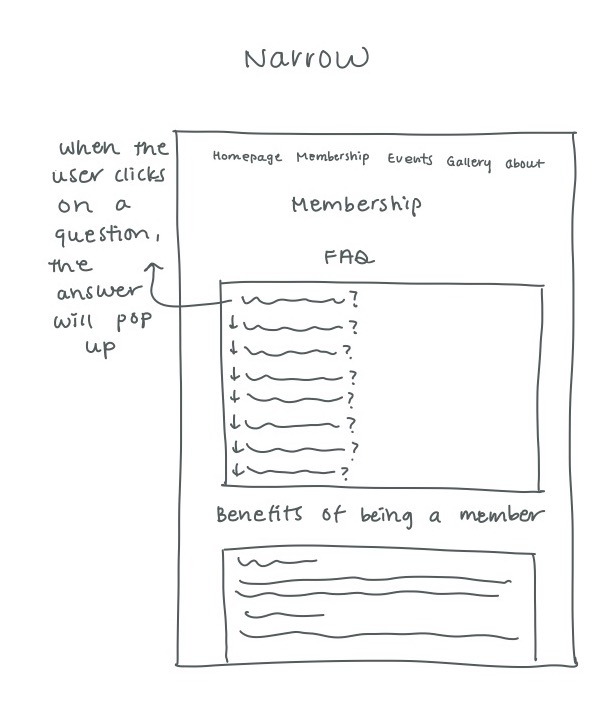 Narrow
when the
user clicks
on a
question,
the
answer
will pop
up
Homepage Membership Events Gallery about
Membership
FAQ
?
?
?
?
?
?
?
?
Benefits of being a member